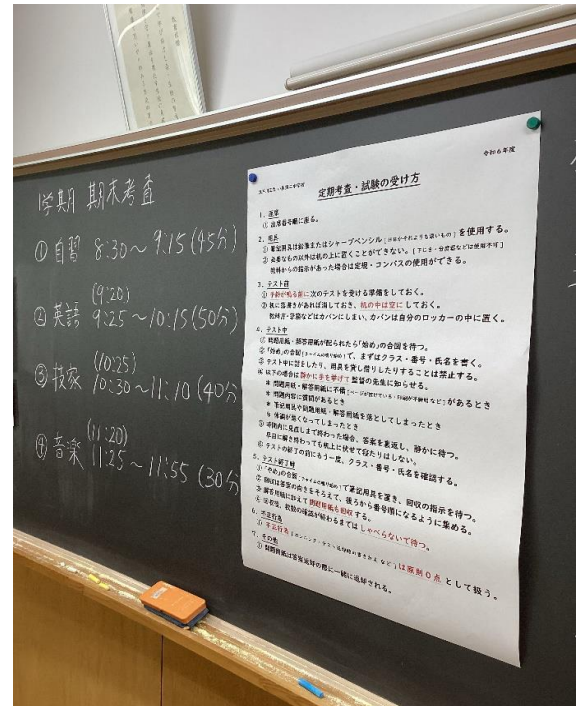 1学期 期末考査
① 自習 8:30～9:15(45分)
(9:20)
② 英語 9:25～10:15(50分)
(10:25)
③ 技家 10:30～11:10(40分
(11:20)
④ 音楽 11:25～11:55(30分
令和6年度
定期考査・試験の受け方
1．座席
① 出席番号順に座る。
2．用具
① 筆記用具は鉛筆またはシャープペンシルを使用する。
② 必要なもの以外は机の上に置くことができない。(下じき・分度器などは使用不可)
教師からの指示があった場合は定規・コンパスの使用ができる。
3．テスト前
① 予鈴が鳴る前に次のテストを受ける準備をしておく。
② 机に落書きがあれば消しておき、机の中は空にしておく。
教科書・計算などはカバンにしまい、カバンは自分のロッカーの中に置く。
4．テスト中
① 問題用紙・解答用紙が配られたら「始め」の合図を待つ。
② 「始め」の合図で、まずはクラス・番号・氏名を書く。
③ テスト中に話をしたり、用具を貸し借りしたりすることは禁止する。
④ 以下の場合は静かに手を挙げて監督の先生に知らせる。
＊ 問題用紙・解答用紙に不備があるとき
＊ 問題内容に質問があるとき
＊ 筆記用具や問題用紙・解答用紙を落としてしまったとき
＊ 体調が悪くなってしまったとき
⑤ 時間内に見直しまで終わった場合、答案を裏返し、静かに待つ。
早目に解き終わっても机上に伏せて寝たりはしない。
⑥ テストの終了の前にもう一度、クラス・番号・氏名を確認する。
5．テスト終了時
① 「やめ」の合図で筆記用具を置き、回収の指示を待つ。
② 回収は答案の向きをそろえて、後ろから番号順になるように集める。
③ 解答用紙に加えて問題用紙も回収する。
④ 回収後、枚数の確認が終わるまではしゃべらないで待つ。
6．不正行為
① 不正行為は原則０点として扱う。
7．その他
① 問題用紙は答案返却の際に一緒に返却される。